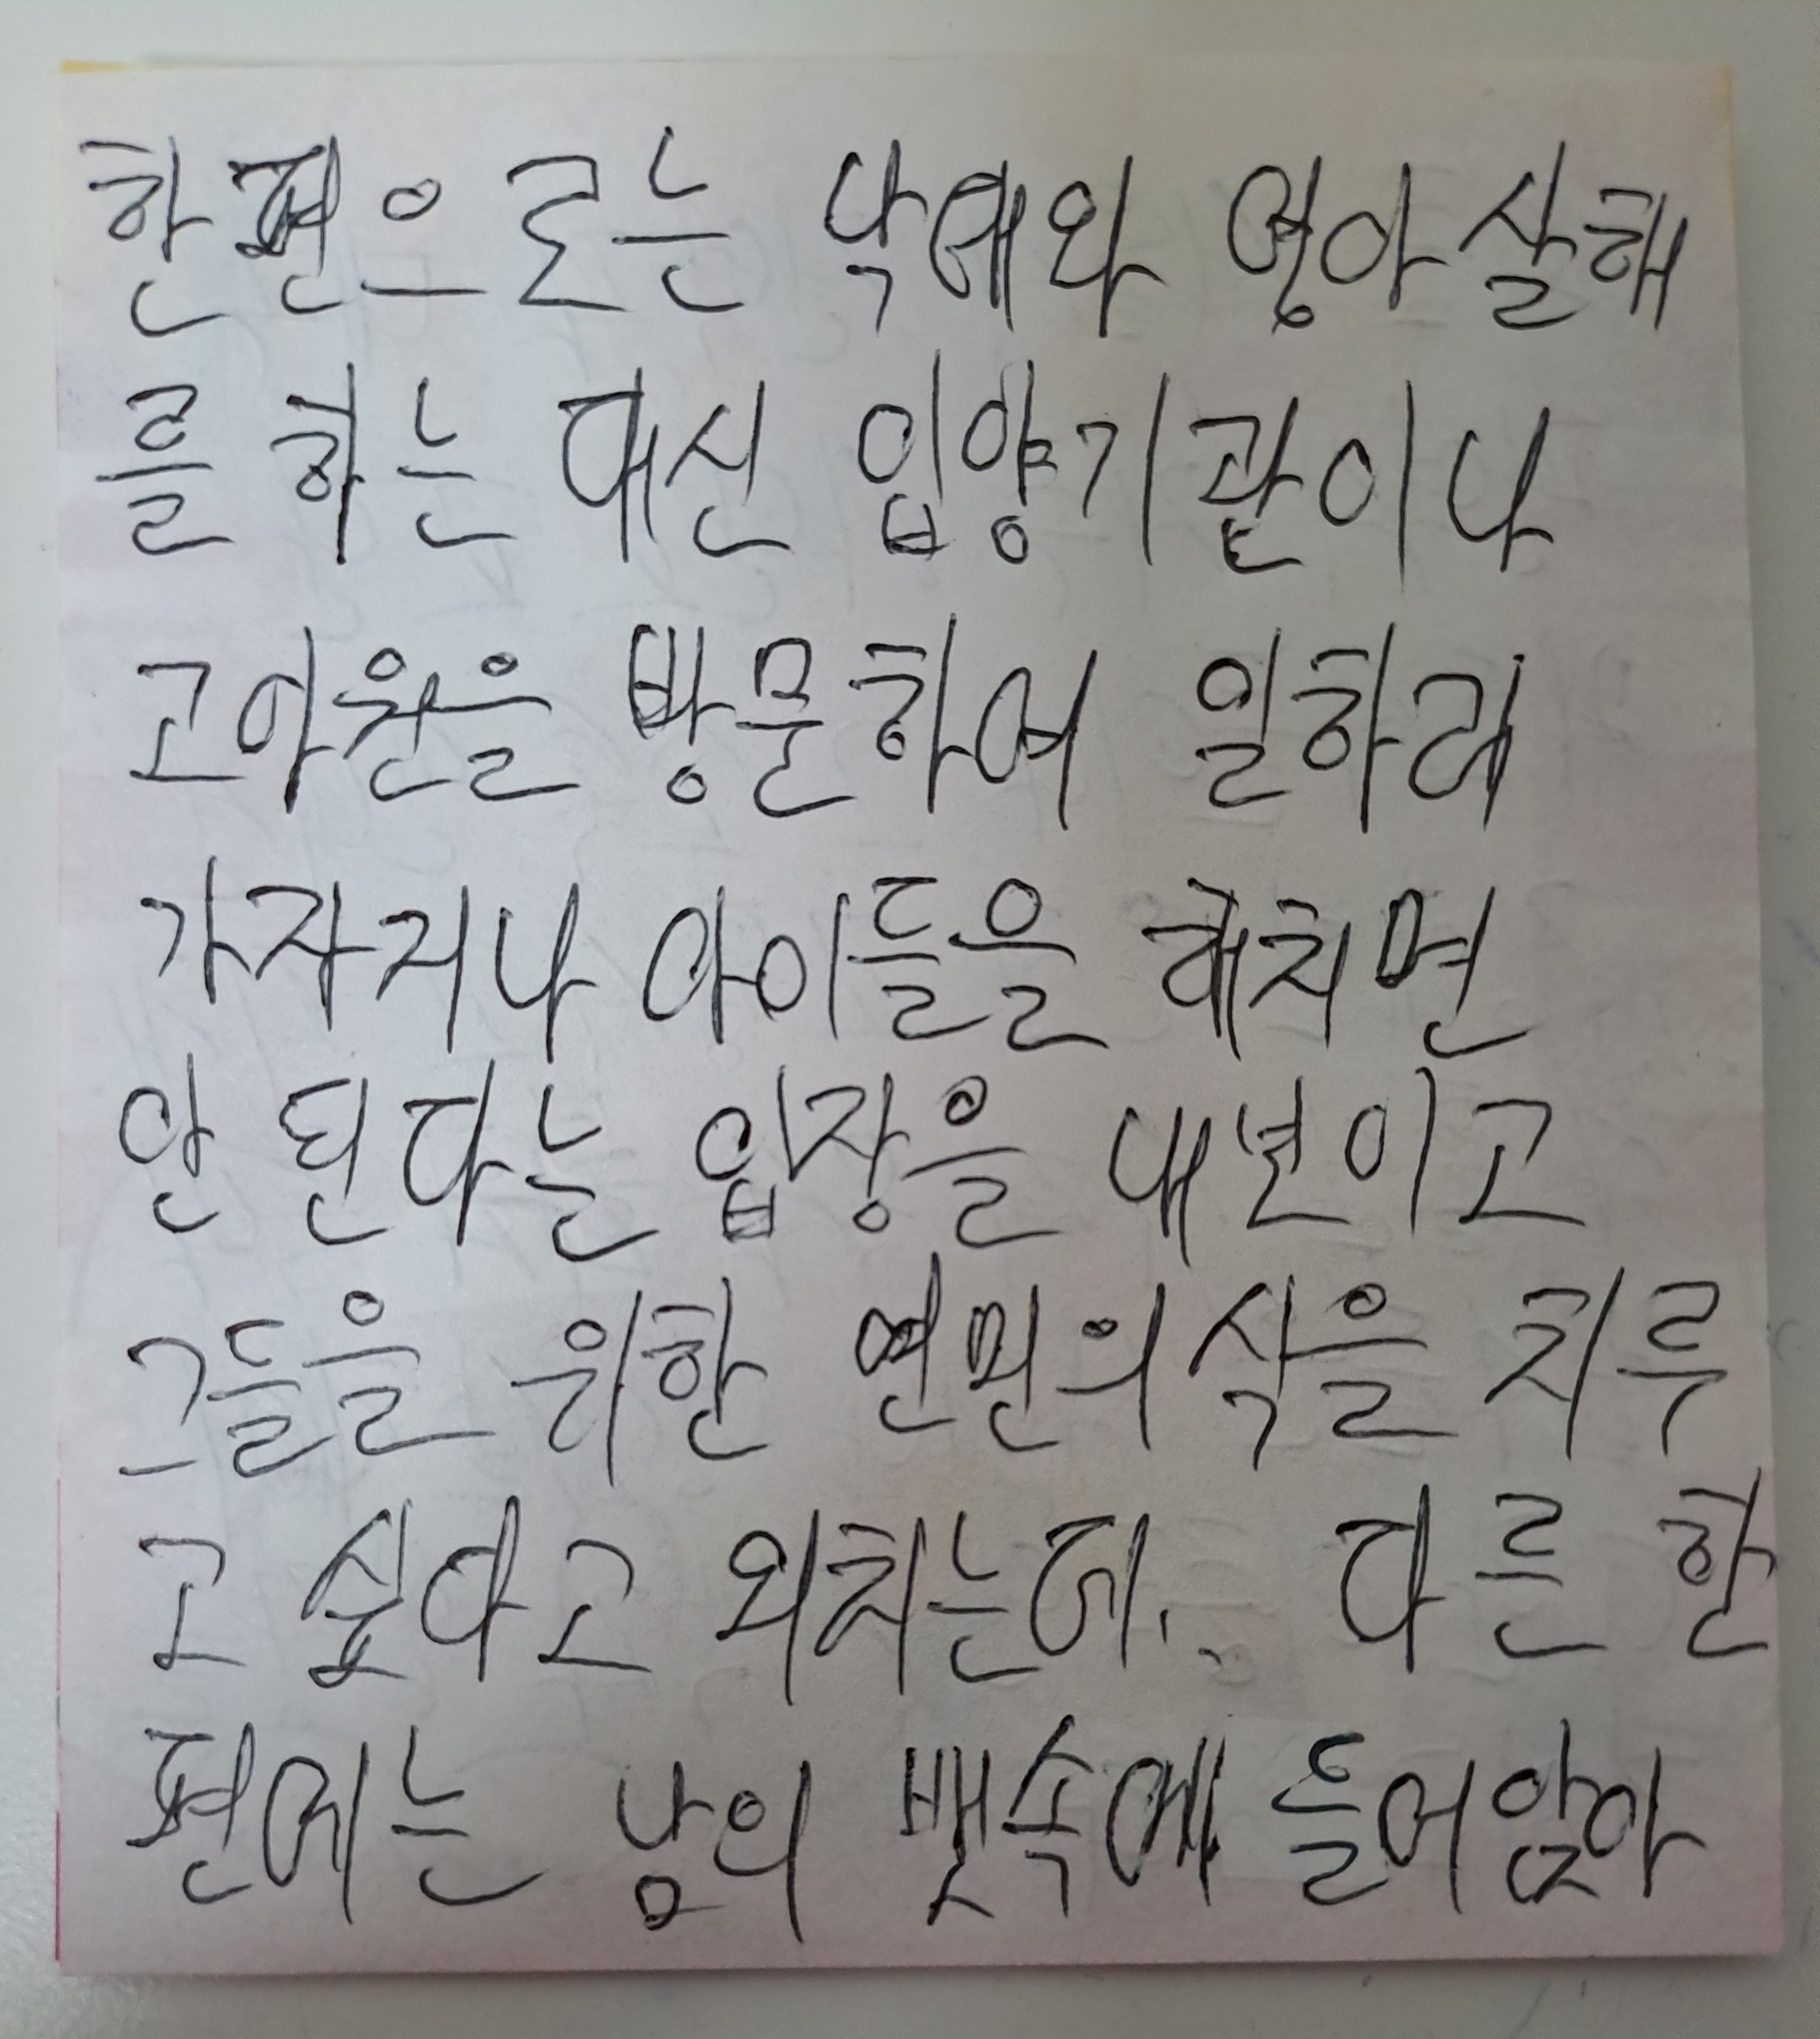 한편으로는 낙예와 영아살해
를 하는 대신 입양기관이나
고아원을 방문하여 일하러
가자거나 아이들을 해치면
안 된다는 입장을 내년이고
그들을 위한 연민의식을 치루
고 싶다고 외치는데.. 다른 한
편에는 남의 뱃속에 들어앉아